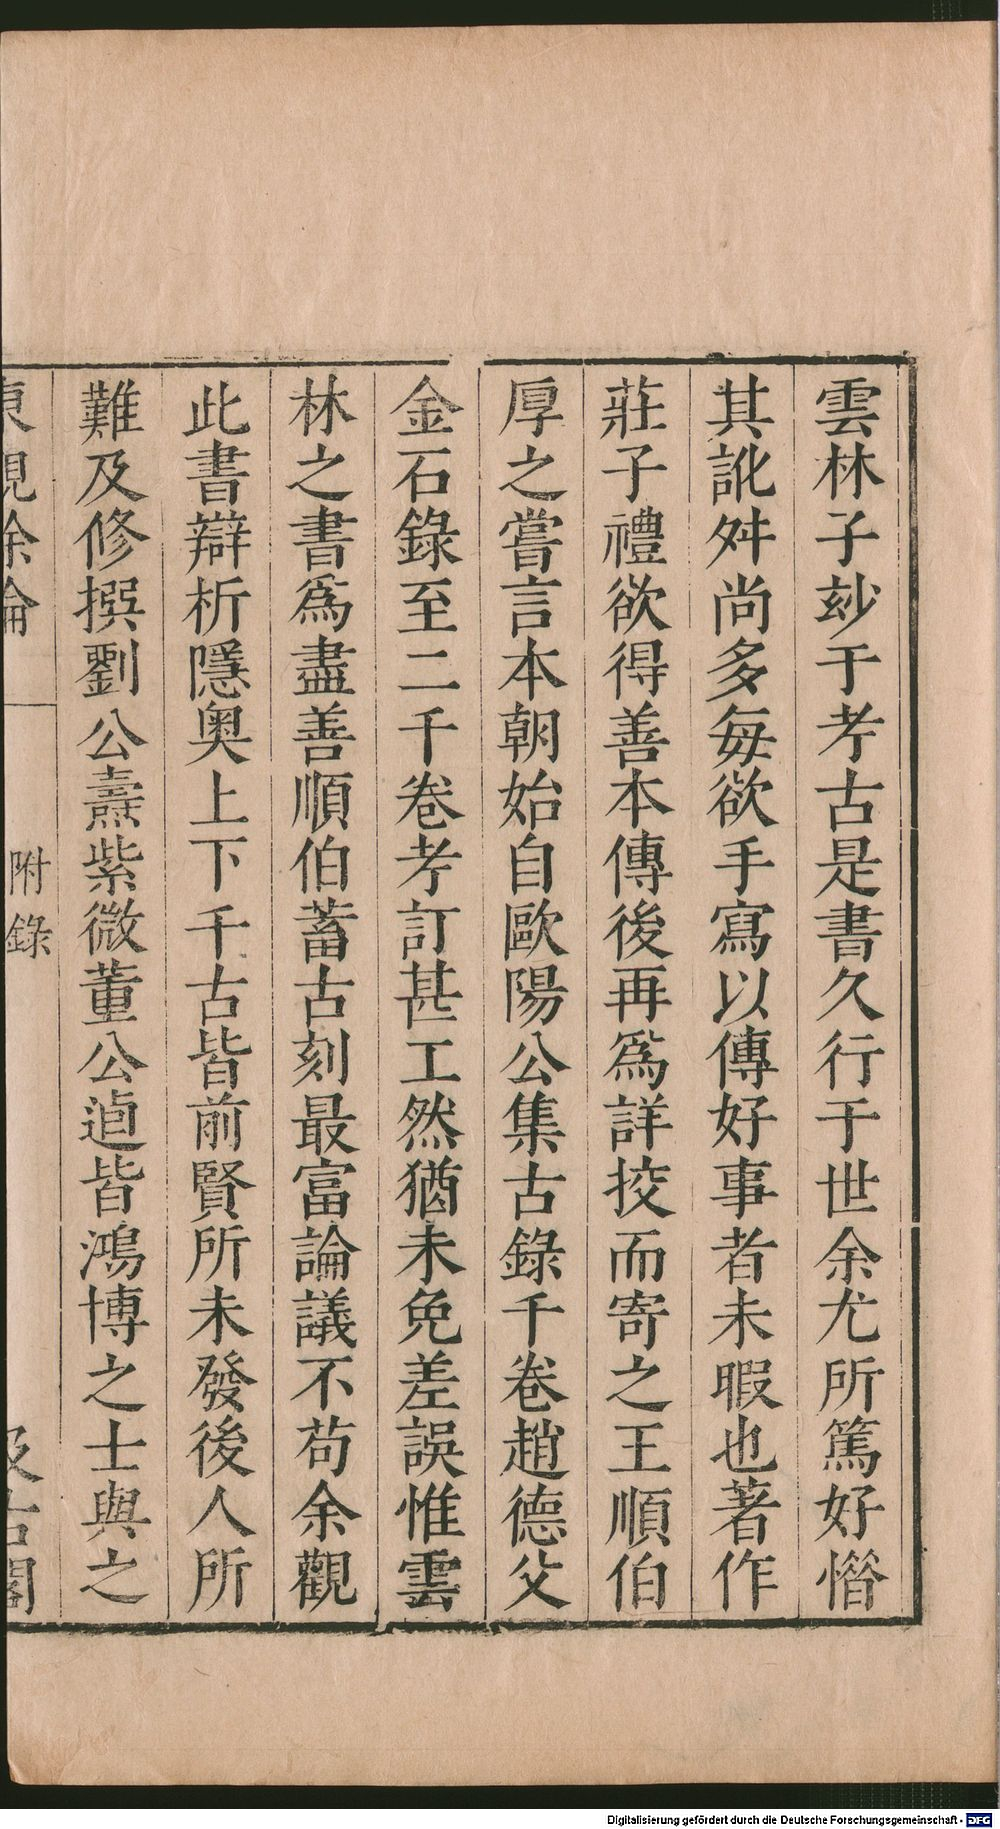 雲林子玅于考古是書久行于世余尤所篤好憯
其訛舛尚多每欲手寫以傳好事者未暇也著作
莊子禮欲得善本傳後再爲詳挍而寄之王順伯
厚之嘗言本朝始自歐陽公集古錄千卷趙德父
金石錄至二千卷考訂甚工然猶未免差誤惟雲
林之書爲盡善順伯蓄古刻最富論議不苟余觀
此書辯析隱奥上下千古皆前賢所未發後人所
難及修撰劉公燾紫微董公逌皆鴻博之士與之
東觀余論 附錄 汲古閣
Digitalisierung gefördert durch die Deutsche Forschungsgemeinschaft - DFG